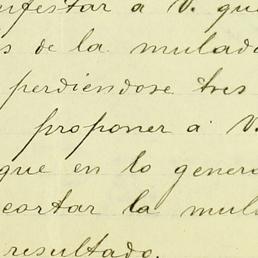 nifestar a V. que
s de la mulada
perdiendose tres
proponer a V.
que en lo genera
cortar la mul
resultado.